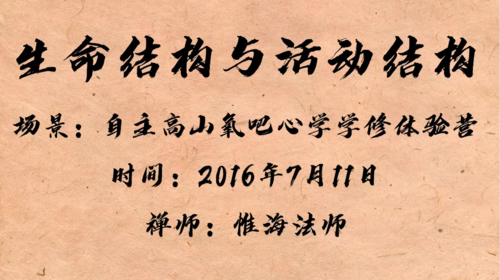 生命结构与活动结构
场景：自主高山氧吧心学学修体验营
时间：2016年7月11日
禅师：惟海法师